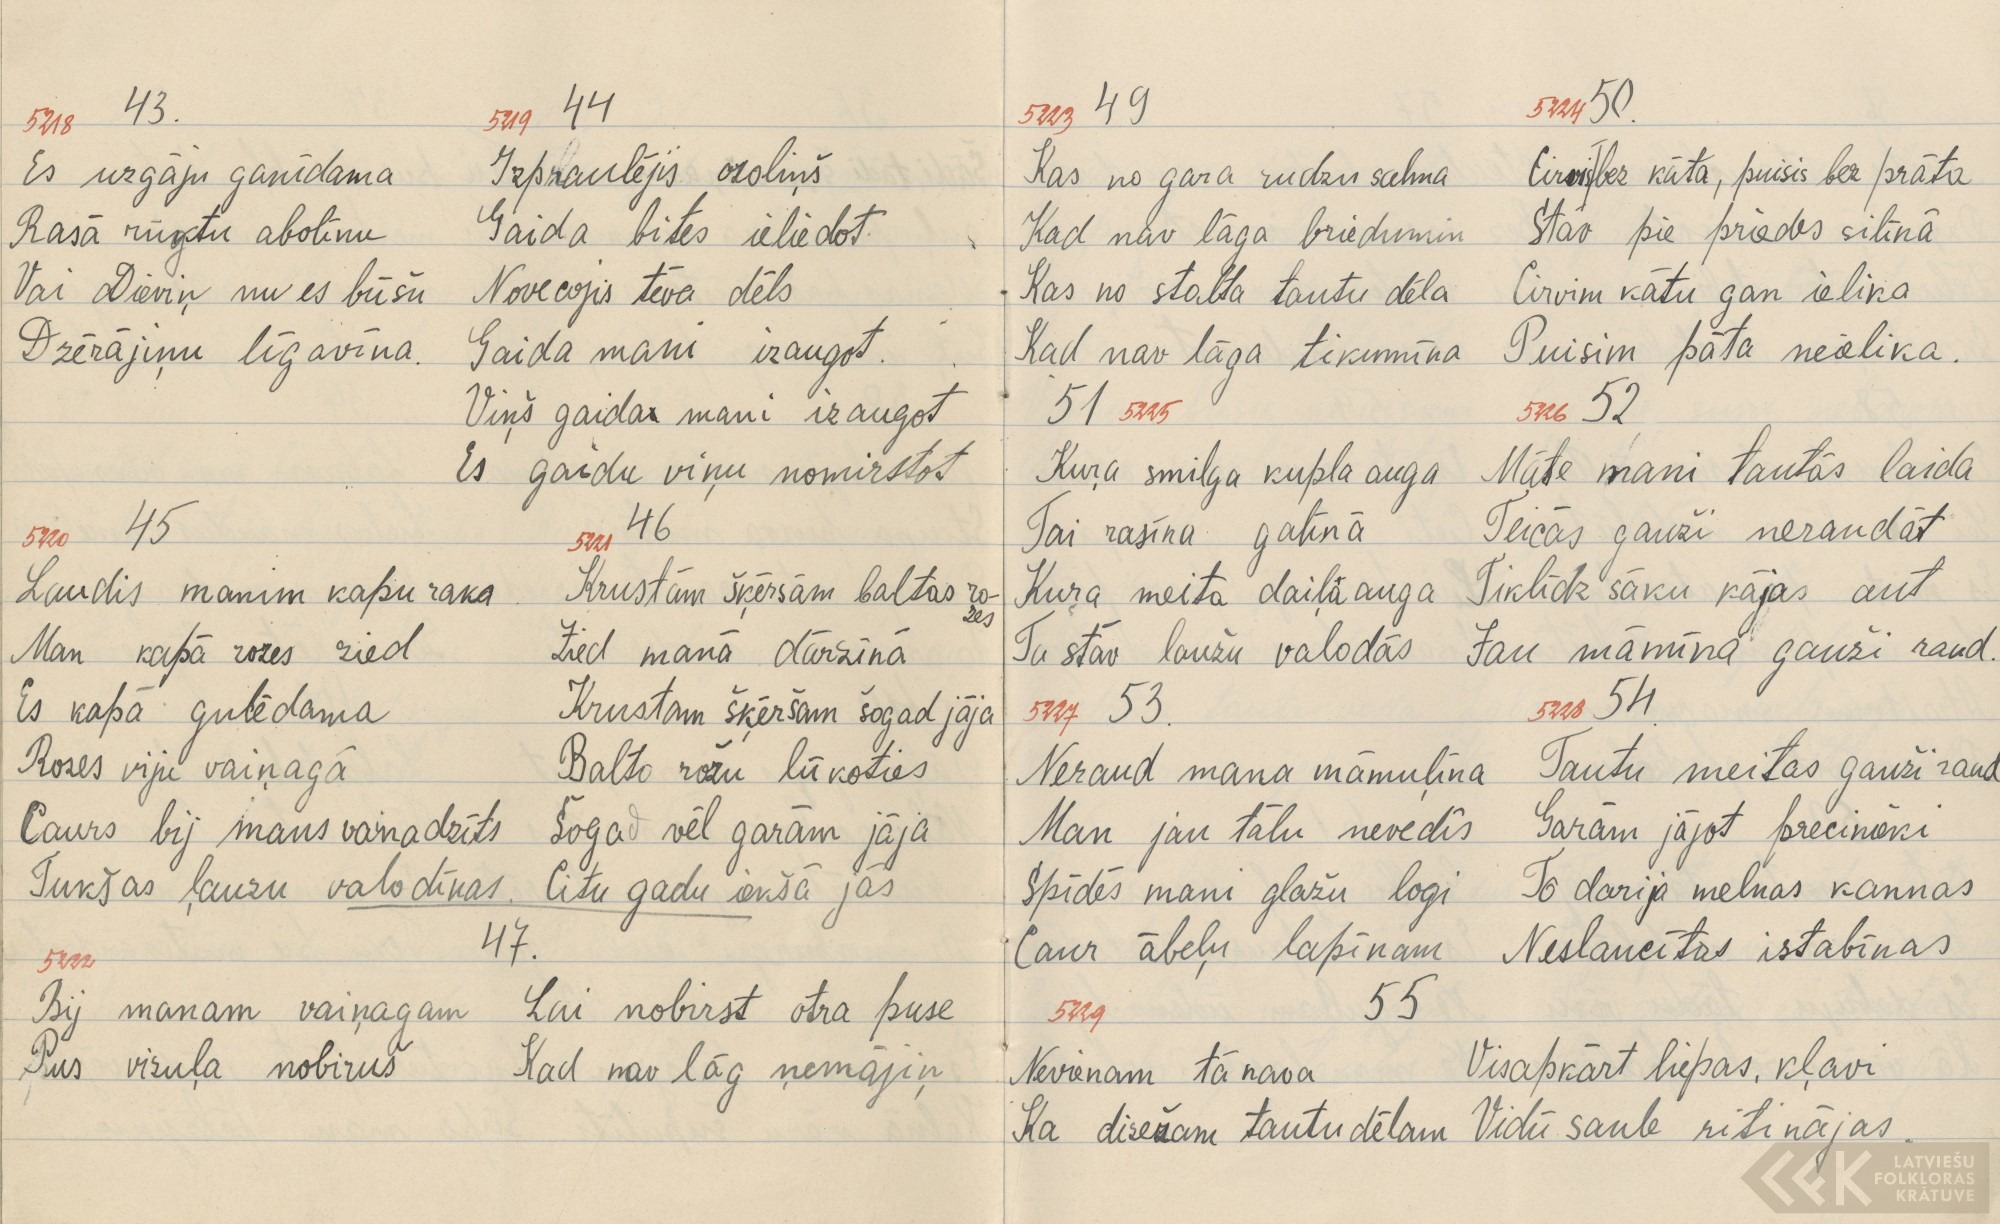 5218 43.
Es uzgāju ganīdama
Rasā rūgtu abolinu
Vai Dieviņ nu es būšu
Dzērājiņu līgavīna.
5219 44
Izpraulējis ozoliņš
Gaida bites ieliedot.
Novecojis tēva dēls
Gaida mani izaugot.
Viņš gaida mani izaugot
Es gaidu viņu nomirstot
5220 45
Laudis manim kapu raka
Man kapā rozes zied
Es kapā gulēdama
Rozes viju vaiņagā
Caurs bij mans vainadzīts
Tukšas ļauzu valodīnas.
5221 46
Krustām šķērsām baltas ro-
zes
Zied manā dārzīnā
Krustam šķēršam šogad jāja
Balto rožu lūkoties
Šogad vēl garām jāja
Citu gadu iekšā jās
5222 47.
Bij manam vaiņagam
Pus vizuļa nobirus
Lai nobirst otra puse
Kad nav lāg ņemājiņ
5223 49
Kas no gara rudzu salma
Kad nav lāga briedumin
Kas no stalta tautu dēla
Kad nav lāga tikumīna
5224 50.
Cirvis bez kāta, puisis bez prāta
Stāv pie priedes silīnā
Cirvim kātu gan ielika
Puisim pāta neielika.
51 5225
Kuŗa smilga kupla auga
Tai rasīna galīnā
Kuŗa meita daiļā auga
Tā stāv laužu valodās
5226 52
Māte mani tautās laida
Teicās gauži neraudāt
Tiklīdz sāku kājas aut
Jau māmīna gauži raud.
5227 53.
Neraud mana māmuļīna
Man jau tālu nevedīs
Spīdēs mani glažu logi
Caur ābeļu lapīnam
5228 54.
Tautu meitas gauži raud
Garām jājot precinieki
To darija melnas kannas
Neslaucītas istabīnas
5229 55
Nevienam tā nava
Ka dizenam tautu dēlam
Visapkārt liepas, kļavi
Vidū saule ritinājas.
LATVIEŠU
FOLKLORAS
KRĀTUVE